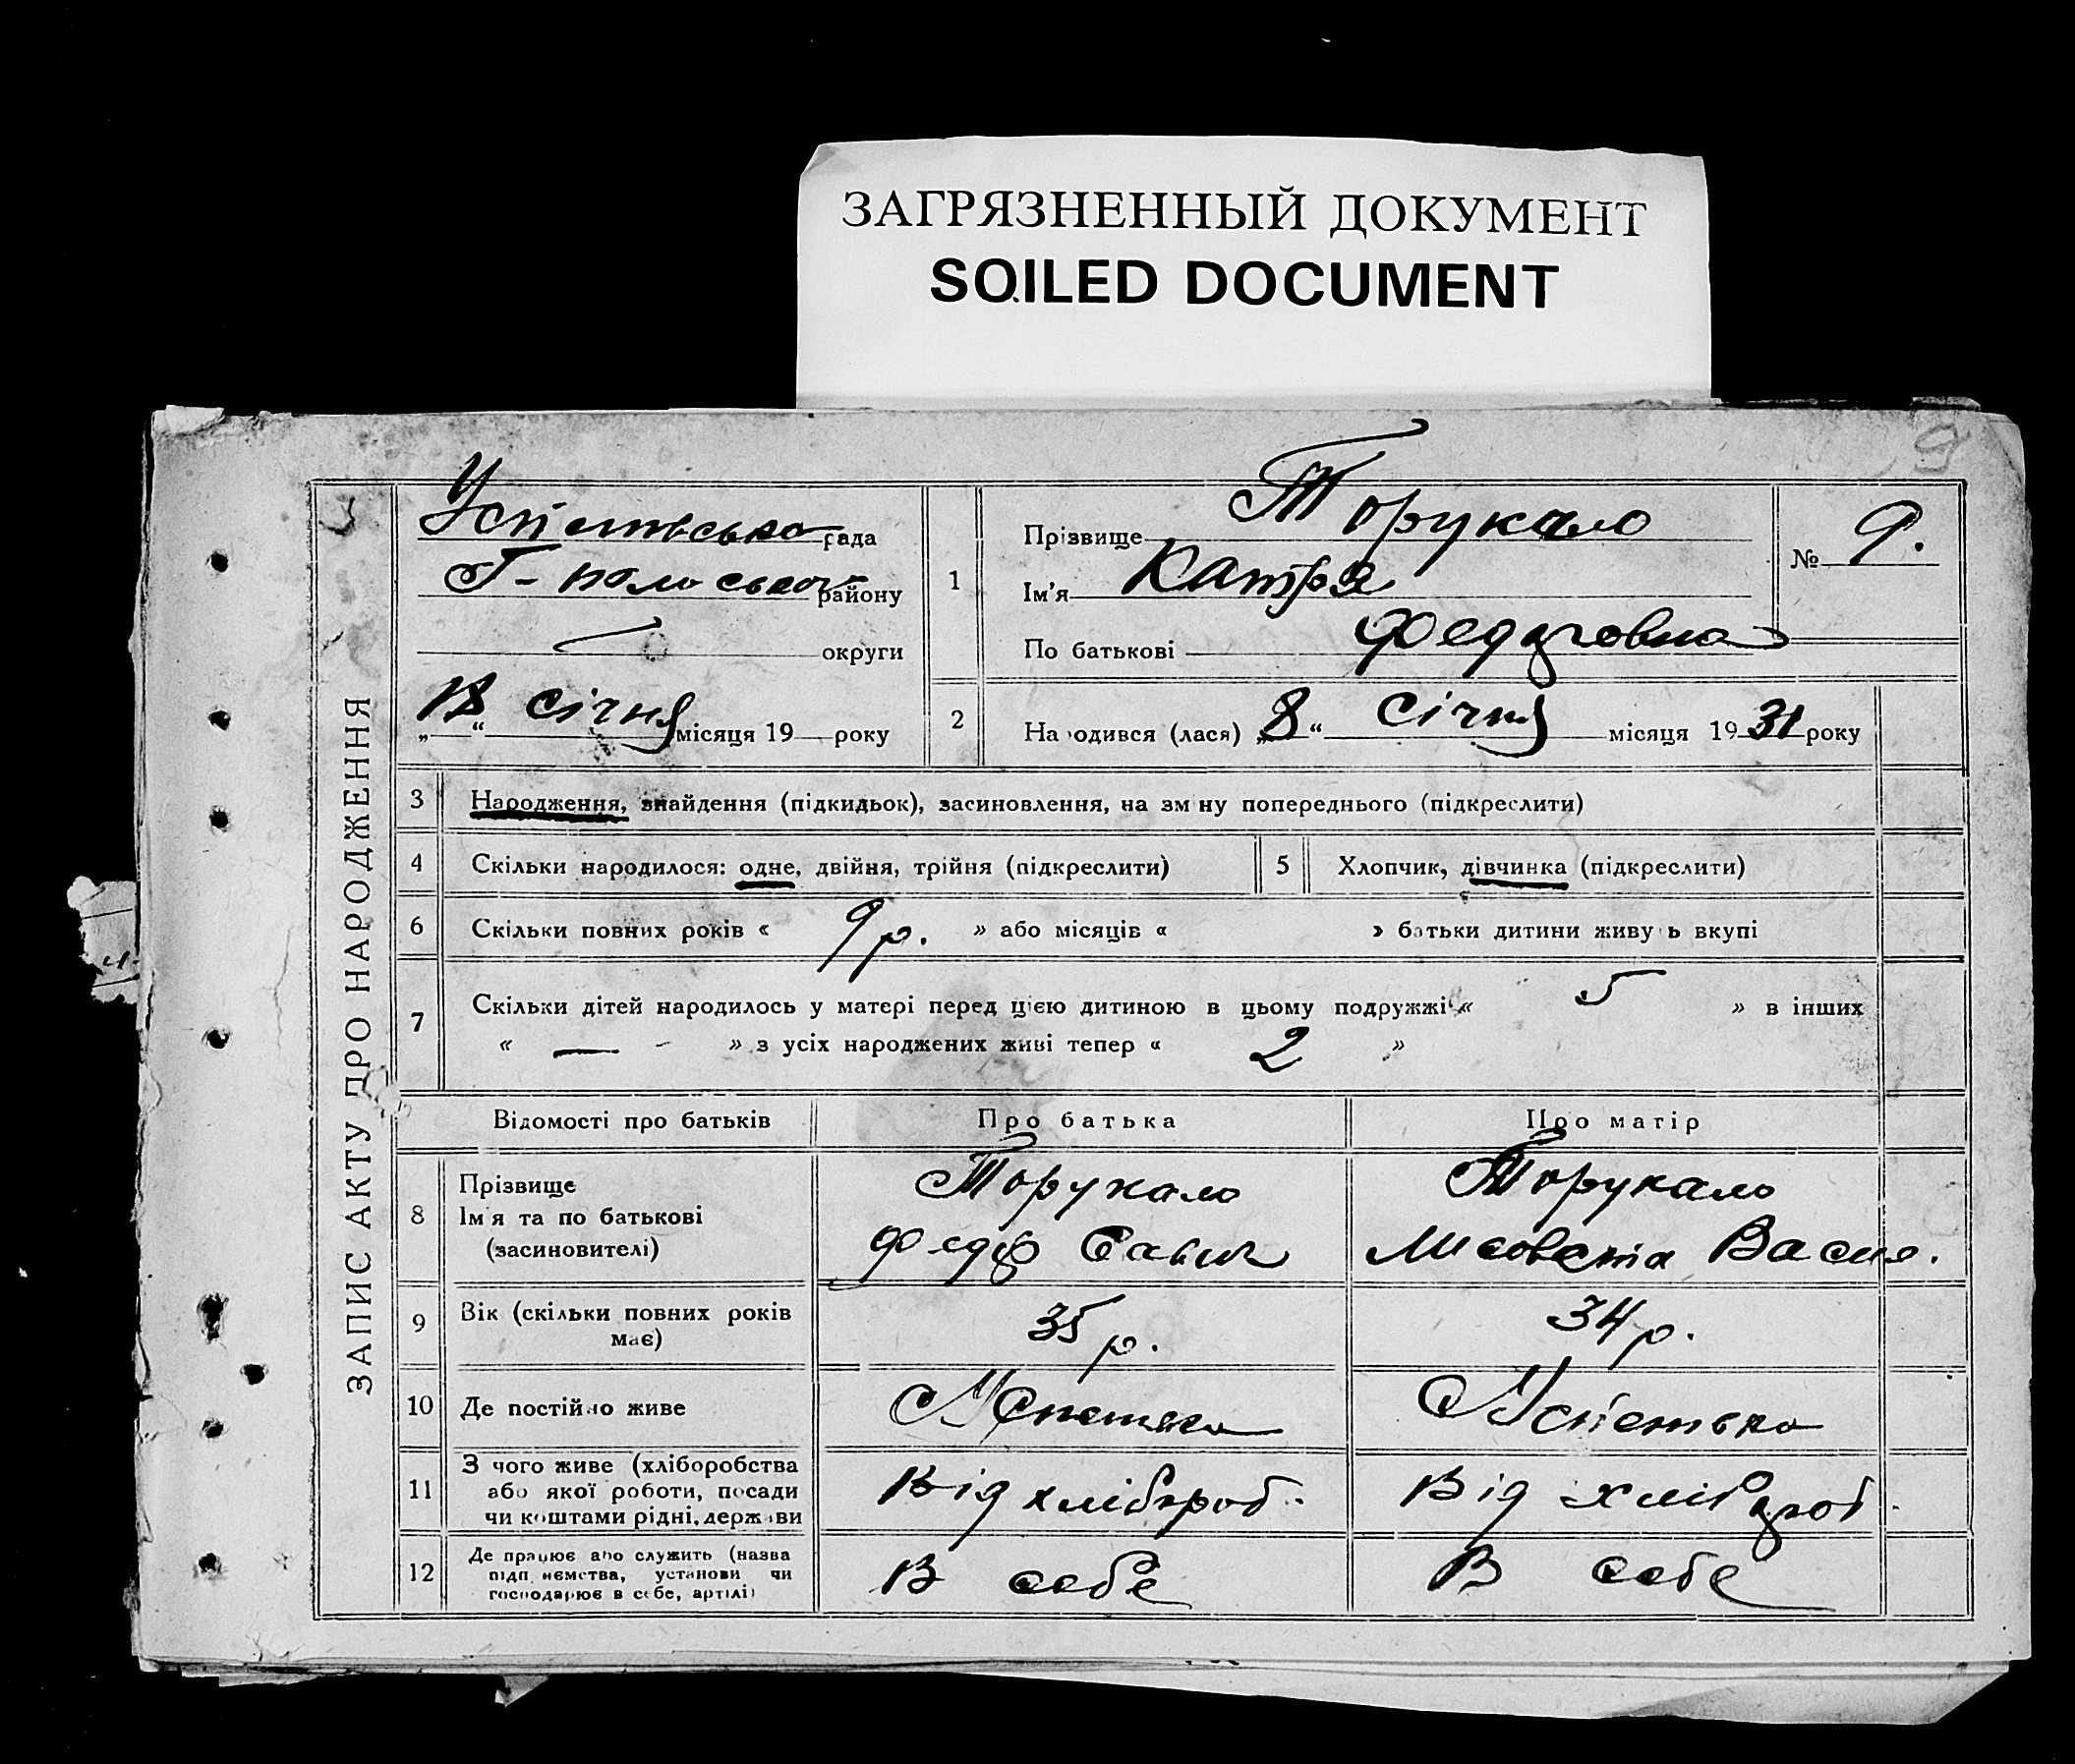 ЗАГРЯЗНЕННЫЙ ДОКУМЕНТ
SOILED DOCUMENT
9
ЗАПИС АКТУ ПРО НАРОДЖЕННЯ
рада
району
округи
„18“ січня місяця 19 року
1
Прізвище Торукало
Ім'я Катря
По батькові Федоровна
№ 9.
2
Народився (лася) „8“ січня місяця 1931 року
3 Народження, знайдення (підкидьок), засиновлення, на зміну попереднього (підкреслити)
4 Скільки народилося: одне, двійня, трійня (підкреслити)
5 Хлопчик, дівчинка (підкреслити)
6 Скільки повних років « 9 р. » або місяців « » батьки дитини живуть вкупі
7 Скільки дітей народилось у матері перед цією дитиною в цьому подружжі « 5 » в інших
« — » з усіх народжених живі тепер « 2 »
Відомості про батьків Про батька Про матір
8 Прізвище
Ім'я та по батькові
(засиновителі)
Торукало
Федор Савич
Торукало
Лисовета Васил.
9 Вік (скільки повних років
має)
35 р.
34 р.
10 Де постійно живе
11 З чого живе (хліборобства
або якої роботи, посади
чи коштами рідні, держави
Від хлібороб.
Від хлібороб.
12 Де працює або служить (назва
підприємства, установи чи
господарює в себе, артілі)
В себе
В себе